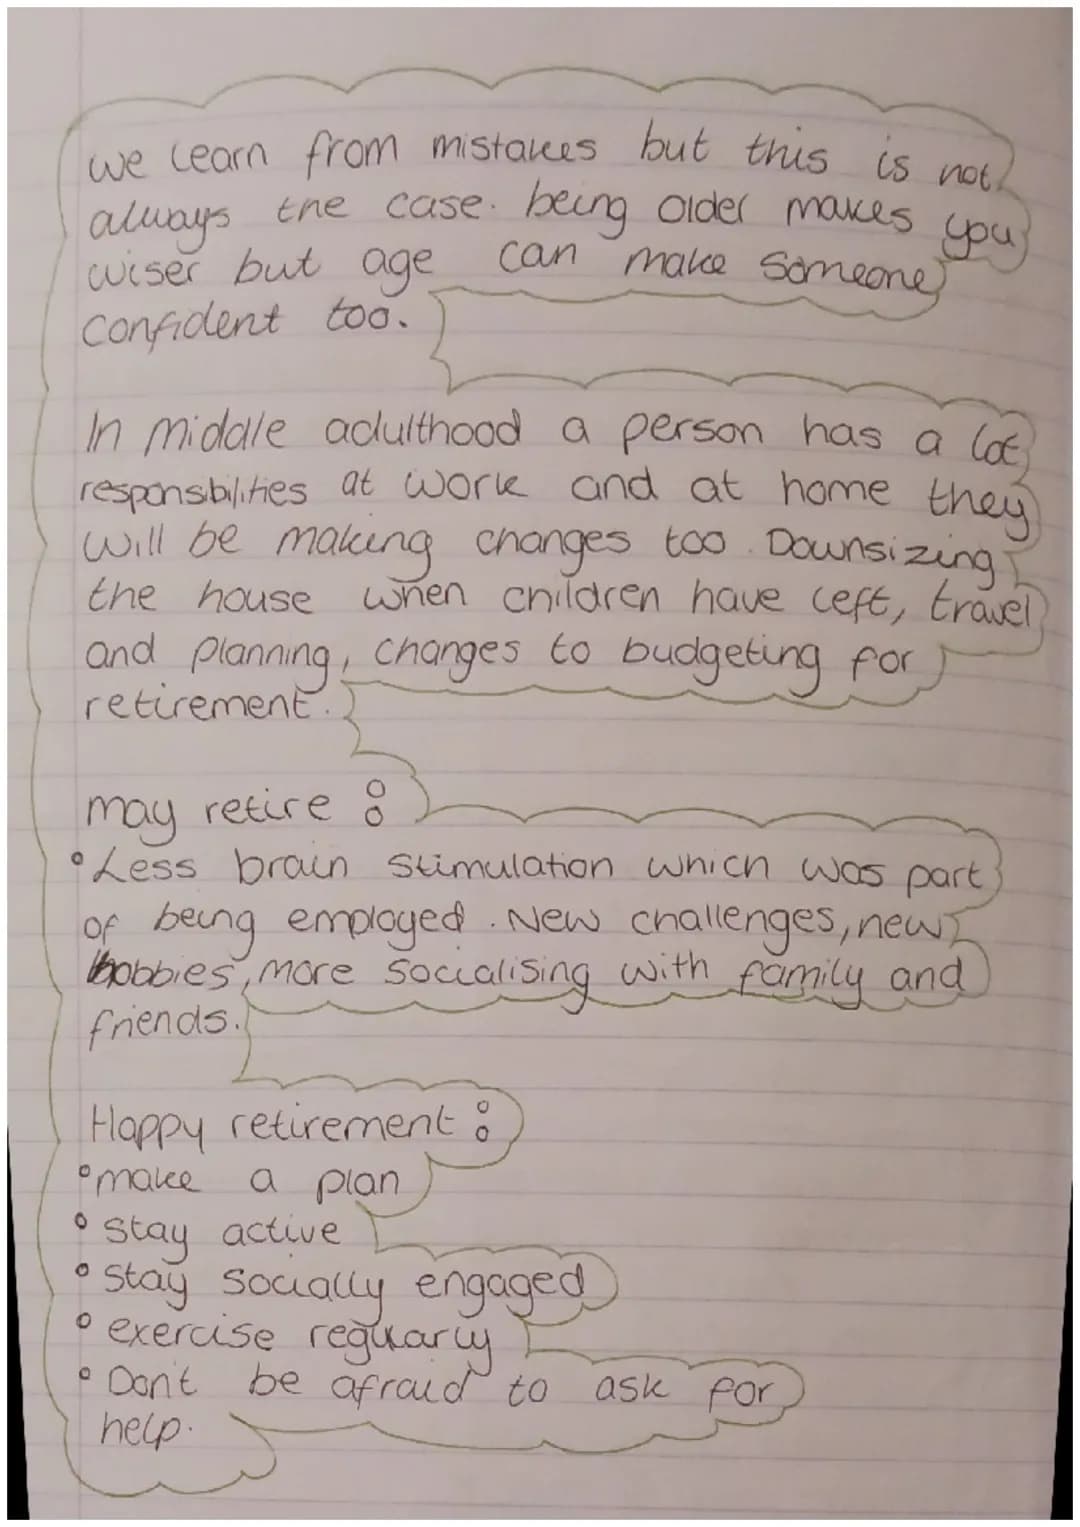 we learn from mistakes but this is not
always the case. being older makes you
wiser but age can make someone
confident too.
In middle adulthood a person has a lot
responsibilities at work and at home they
will be making changes too. Downsizing
the house when children have left, travel
and planning, changes to budgeting for
retirement.
may retire :
• Less brain stimulation which was part
of being employed. New challenges, new
hobbies, more socialising with family and
friends.
Happy retirement :
• make a plan
• stay active
• stay socially engaged
• exercise regularly
• Don't be afraid to ask for
help.